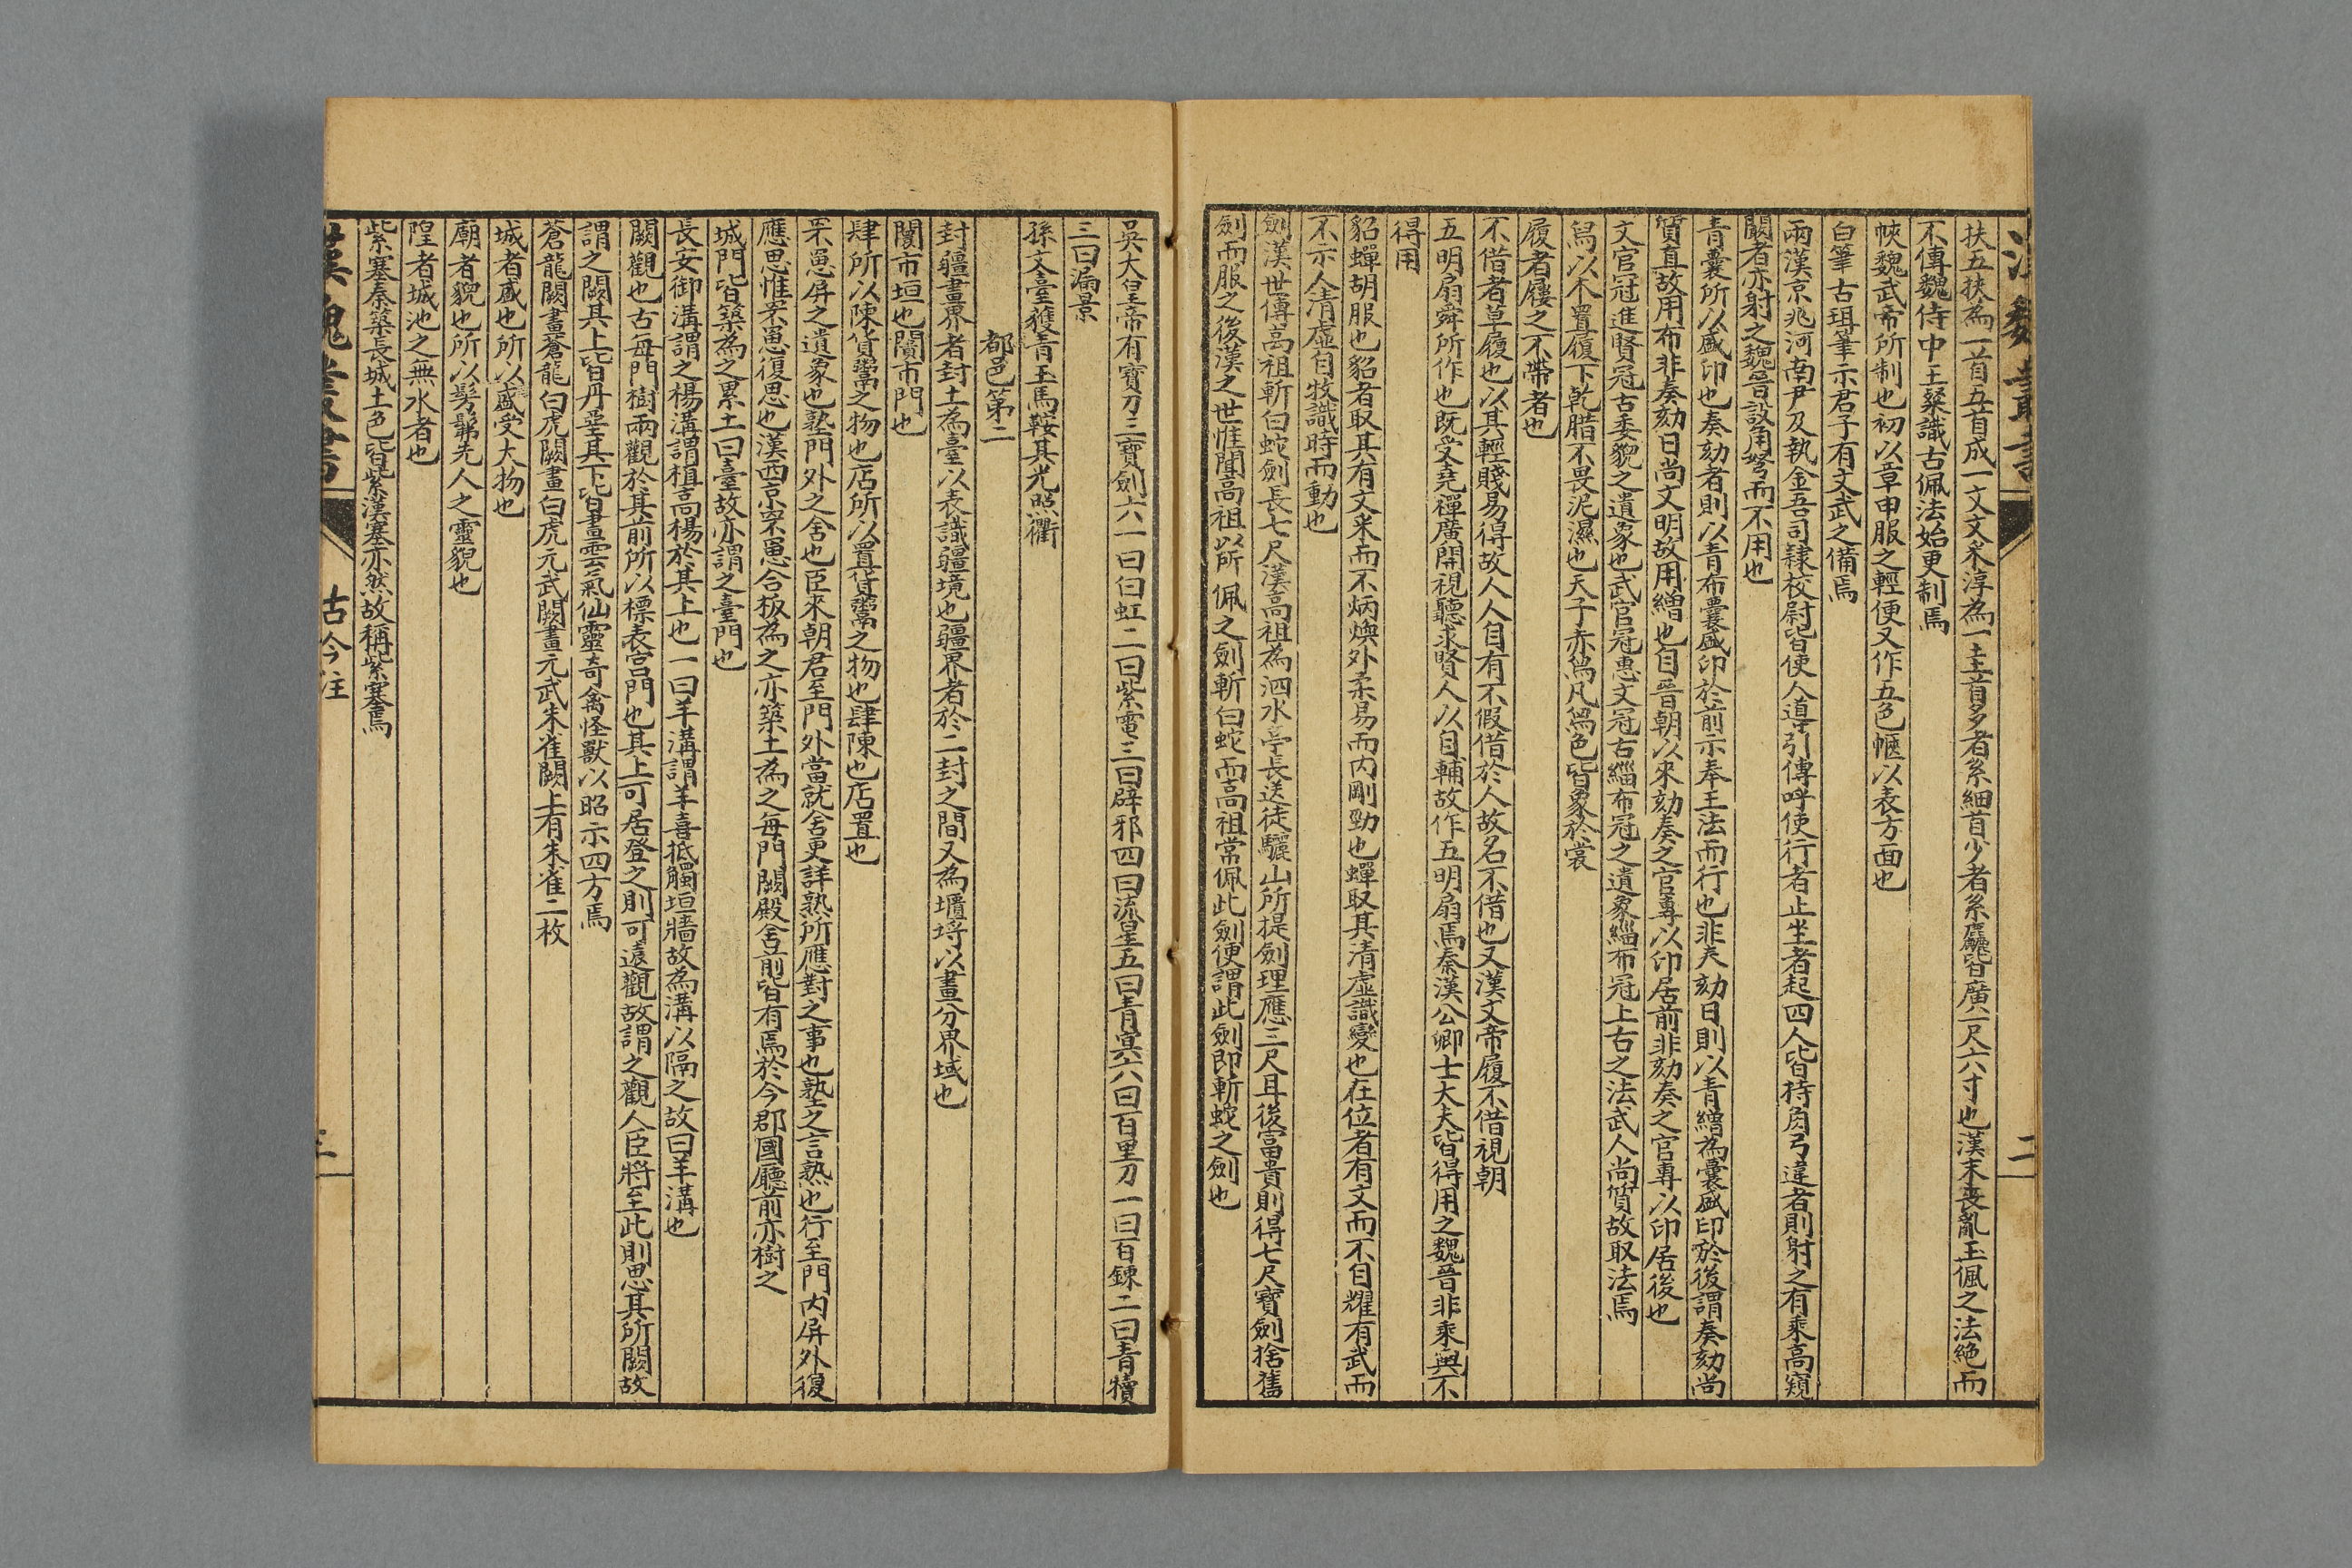 漢魏叢書
二
扶五扶為一首五首成一文文采淳為一圭首多者系細首少者系麤皆廣一尺六寸也漢末喪亂玉佩之法絕而
不傳魏侍中王粲識古佩法始更制焉
帙魏武帝所制也初以章申服之輕便又作五色幍以表方面也
白筆古珥筆示君子有文武之備焉
兩漢京兆河南尹及執金吾司隸校尉皆使人導引傳呼使行者止坐者起四人皆持角弓違者則射之有乘高窺
闕者亦射之魏晉設角弩而不用也
青囊所以盛印也奏劾者則以青布囊盛印於前示奉王法而行也非奏劾日則以青繒為囊盛印於後謂奏劾尚
質直故用布非奏劾日尚文明故用繒也自晉朝以來劾奏之官專以印居前非劾奏之官專以印居後也
文官冠進賢冠古委貌之遺象也武官冠惠文冠古緇布冠之遺象緇布冠上古之法武人尚質故取法焉
舄以木置履下乾腊不畏泥濕也天子赤舄凡舄色皆象於裳
履者屨之不帶者也
不借者草履也以其輕賤易得故人人自有不假借於人故名不借也又漢文帝履不借視朝
五明扇舜所作也既受堯禪廣開視聽求賢人以自輔故作五明扇焉秦漢公卿士大夫皆得用之魏晉非乘輿不
得用
貂蟬胡服也貂者取其有文采而不炳煥外柔易而內剛勁也蟬取其清虛識變也在位者有文而不自耀有武而
不示人清虛自牧識時而動也
劍漢世傳高祖斬白蛇劍長七尺漢高祖為泗水亭長送徒驪山所提劍理應三尺耳後富貴則得七尺寶劍捨舊
劍而服之後漢之世惟聞高祖以所佩之劍斬白蛇而高祖常佩此劍便謂此劍即斬蛇之劍也
吳大皇帝有寶刀三寶劍六一曰白虹二曰紫電三曰辟邪四曰流星五曰青冥六曰百里刀一曰百鍊二曰青犢
三曰漏景
孫文臺獲青玉馬鞍其光照衢
都邑第二
封疆畫界者封土為臺以表識疆境也疆界者於二封之間又為壝埒以畫分界域也
闤市垣也闠市門也
肆所以陳貨鬻之物也店所以置貨鬻之物也肆陳也店置也
罘罳屏之遺象也塾門外之舍也臣來朝君至門外當就舍更詳熟所應對之事也塾之言熟也行至門內屏外復
應思惟罘罳復思也漢西京罘罳合板為之亦築土為之每門闕殿舍前皆有焉於今郡國廳前亦樹之
城門皆築為之累土曰臺故亦謂之臺門也
長安御溝謂之楊溝謂植高楊於其上也一曰羊溝謂羊喜抵觸垣牆故為溝以隔之故曰羊溝也
闕觀也古每門樹兩觀於其前所以標表宮門也其上可居登之則可遠觀故謂之觀人臣將至此則思其所闕故
謂之闕其上皆丹堊其下皆畫雲氣仙靈奇禽怪獸以昭示四方焉
蒼龍闕畫蒼龍白虎闕畫白虎元武闕畫元武朱雀闕上有朱雀二枚
城者盛也所以盛受大物也
廟者貌也所以髣髴先人之靈貌也
隍者城池之無水者也
紫塞秦築長城土色皆紫漢塞亦然故稱紫塞焉
漢魏叢書
古今注
三